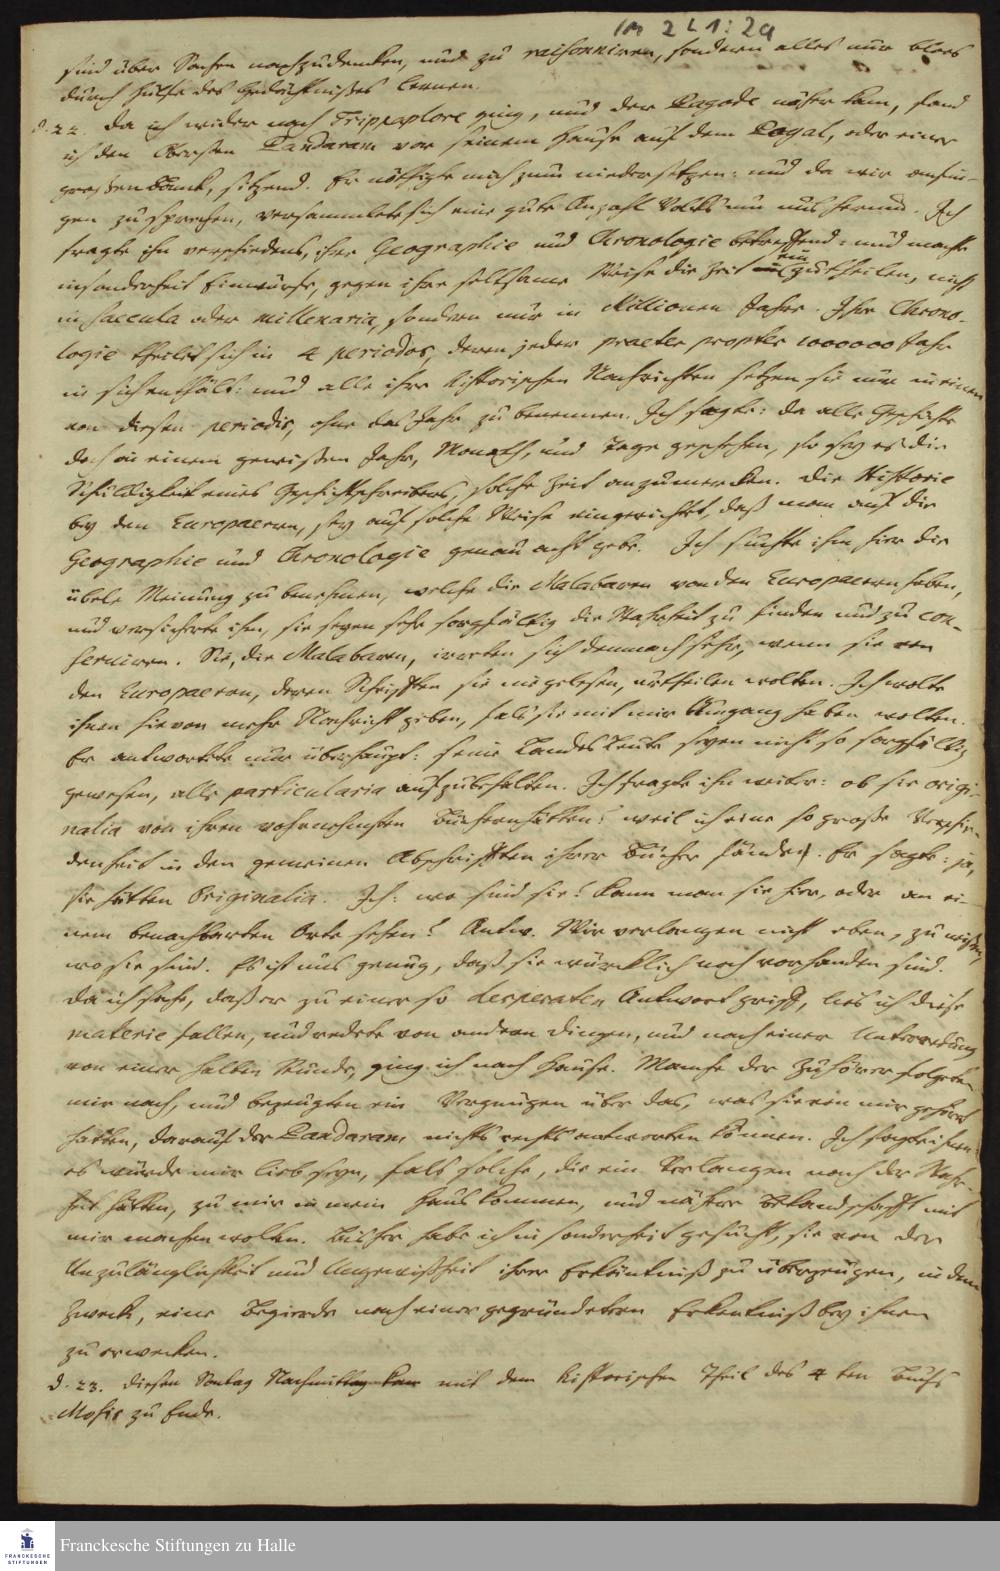 1M 2 L 1 : 29
sind über Sachen nachzudencken, und zu raisonniren, sondern alles nur blos
durch Hülfe des Gedächtnißes lernen.
d. 22. Da ich wider nach Trippaplore ging, und der Pagode näher kam, fand
ich den Obersten Pandaram vor seinem Hause auf dem Poyal, oder einer
großen Banck, sitzend. Er nöthigte mich zum niedersetzen: und da wir anfin-
gen zu sprechen, versammlete sich eine gute Anzahl Volcks um uns herum. Ich
fragte ihn verschiedenes, ihre Geographie und Chronologie betreffend: und machte
insonderheit Einwürfe, gegen ihre seltsame Weise die Zeit einzutheilen, nicht
in saecula oder millenaria, sondern nur in Millionen Jahre. Ihre Chrono-
logie theilet sich in 4 periodos, deren jeder praeter propter 1000000 Jahr
in sich enthält: und alle ihre historischen Nachrichten setzen sie nur in einen
von diesen periodis, ohne das Jahr zu benennen. Ich sagte: da alle Geschichte
doch in einem gewißen Jahr, Monath, und Tage geschehen, so sey es die
Schuldigkeit eines Geschichtschreibers, solche Zeit anzumercken. Die Historie
bey den Europaeern, sey auf solche Weise eingerichtet, daß man auf die
Geographie und Chronologie genau acht gebe. Ich suchte ihm hier die
übele Meinung zu benehmen, welche die Malabaren von den Europaeern haben,
und versicherte ihn, sie seyen sehr sorgfältig die Wahrheit zu finden und zu con-
serviren. Sie, die Malabaren, irreten sich demnach sehr, wenn sie von
den Europaeern, deren Schrifften sie nie gelesen, urtheilen wolten. Ich wolte
ihnen hievon mehr Nachricht geben, fals sie mit mir Umgang haben wolten.
Er antwortete nur überhaupt: seine Landes Leute seyen nicht so sorgfältig
gewesen, alle particularia aufzubehalten. Ich fragte ihn weiter: ob sie origi-
nalia von ihren vornehmsten Büchern hätten? weil ich eine so große Verschie-
denheit in den gemeinen Abschrifften ihrer Bücher fände. Er sagte: ja,
sie hätten Originalia. Ich: wo sind sie? kann man sie hier, oder an ei-
nem benachbarten Orte sehen? Antw. Wir verlangen nicht eben, zu wißen,
wo sie sind. Es ist uns genug, daß sie würcklich noch vorhanden sind.
Da ich sahe, daß er zu einer so desperaten Antwort griff, lies ich diese
materie fallen, und redete von andern Dingen, und nach einer Unterredung
von einer halben Stunde, ging ich nach Hause. Manche der Zuhörer folgeten
mir nach, und bezeugten ein Vergnügen über das, was sie von mir gehöret
hätten, darauf der Pandaram nichts rechts antworten können. Ich sagte ihnen:
es würde mir lieb seyn, fals solche, die ein Verlangen nach der Wahr-
heit hätten, zu mir in mein Haus kommen, und nähere Bekandschafft mit
mir machen wolten. Bisher habe ich insonderheit gesucht, sie von der
Unzulänglichkeit und Ungewißheit ihrer Erkäntniß zu überzeugen, in dem
Zweck, eine Begierde nach einer gegründetern Erkentniß bey ihnen
zu erwecken.
d. 23. Diesen Sontag Nachmittag kam mit dem historischen Theil des 4ten Buchs
Mosis zu Ende.
FRANCKESCHE
STIFTUNGEN
Franckesche Stiftungen zu Halle